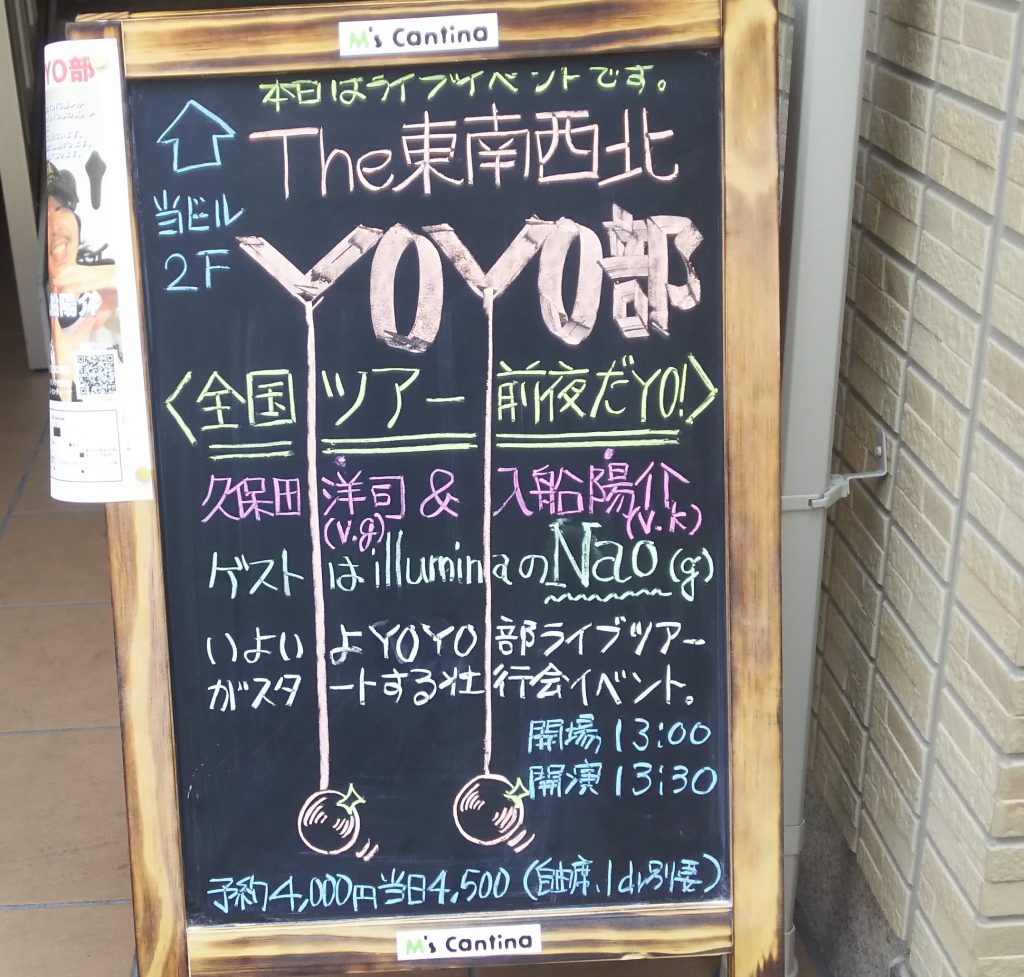 M's Cantina
本日はライブイベントです。
The東南西北
当ビル
2F
YOYO部
〈全国ツアー前夜だYO!〉
久保田洋司&入船陽介
(v.g)
(v.k)
ゲストはilluminaのNao(g)
いよいよYOYO部ライブツアー
がスタートする壮行会イベント。
開場13:00
開演13:30
予約4,000円当日4,500(自由席、1dr別妻)
M's Cantina
YO部
船陽介